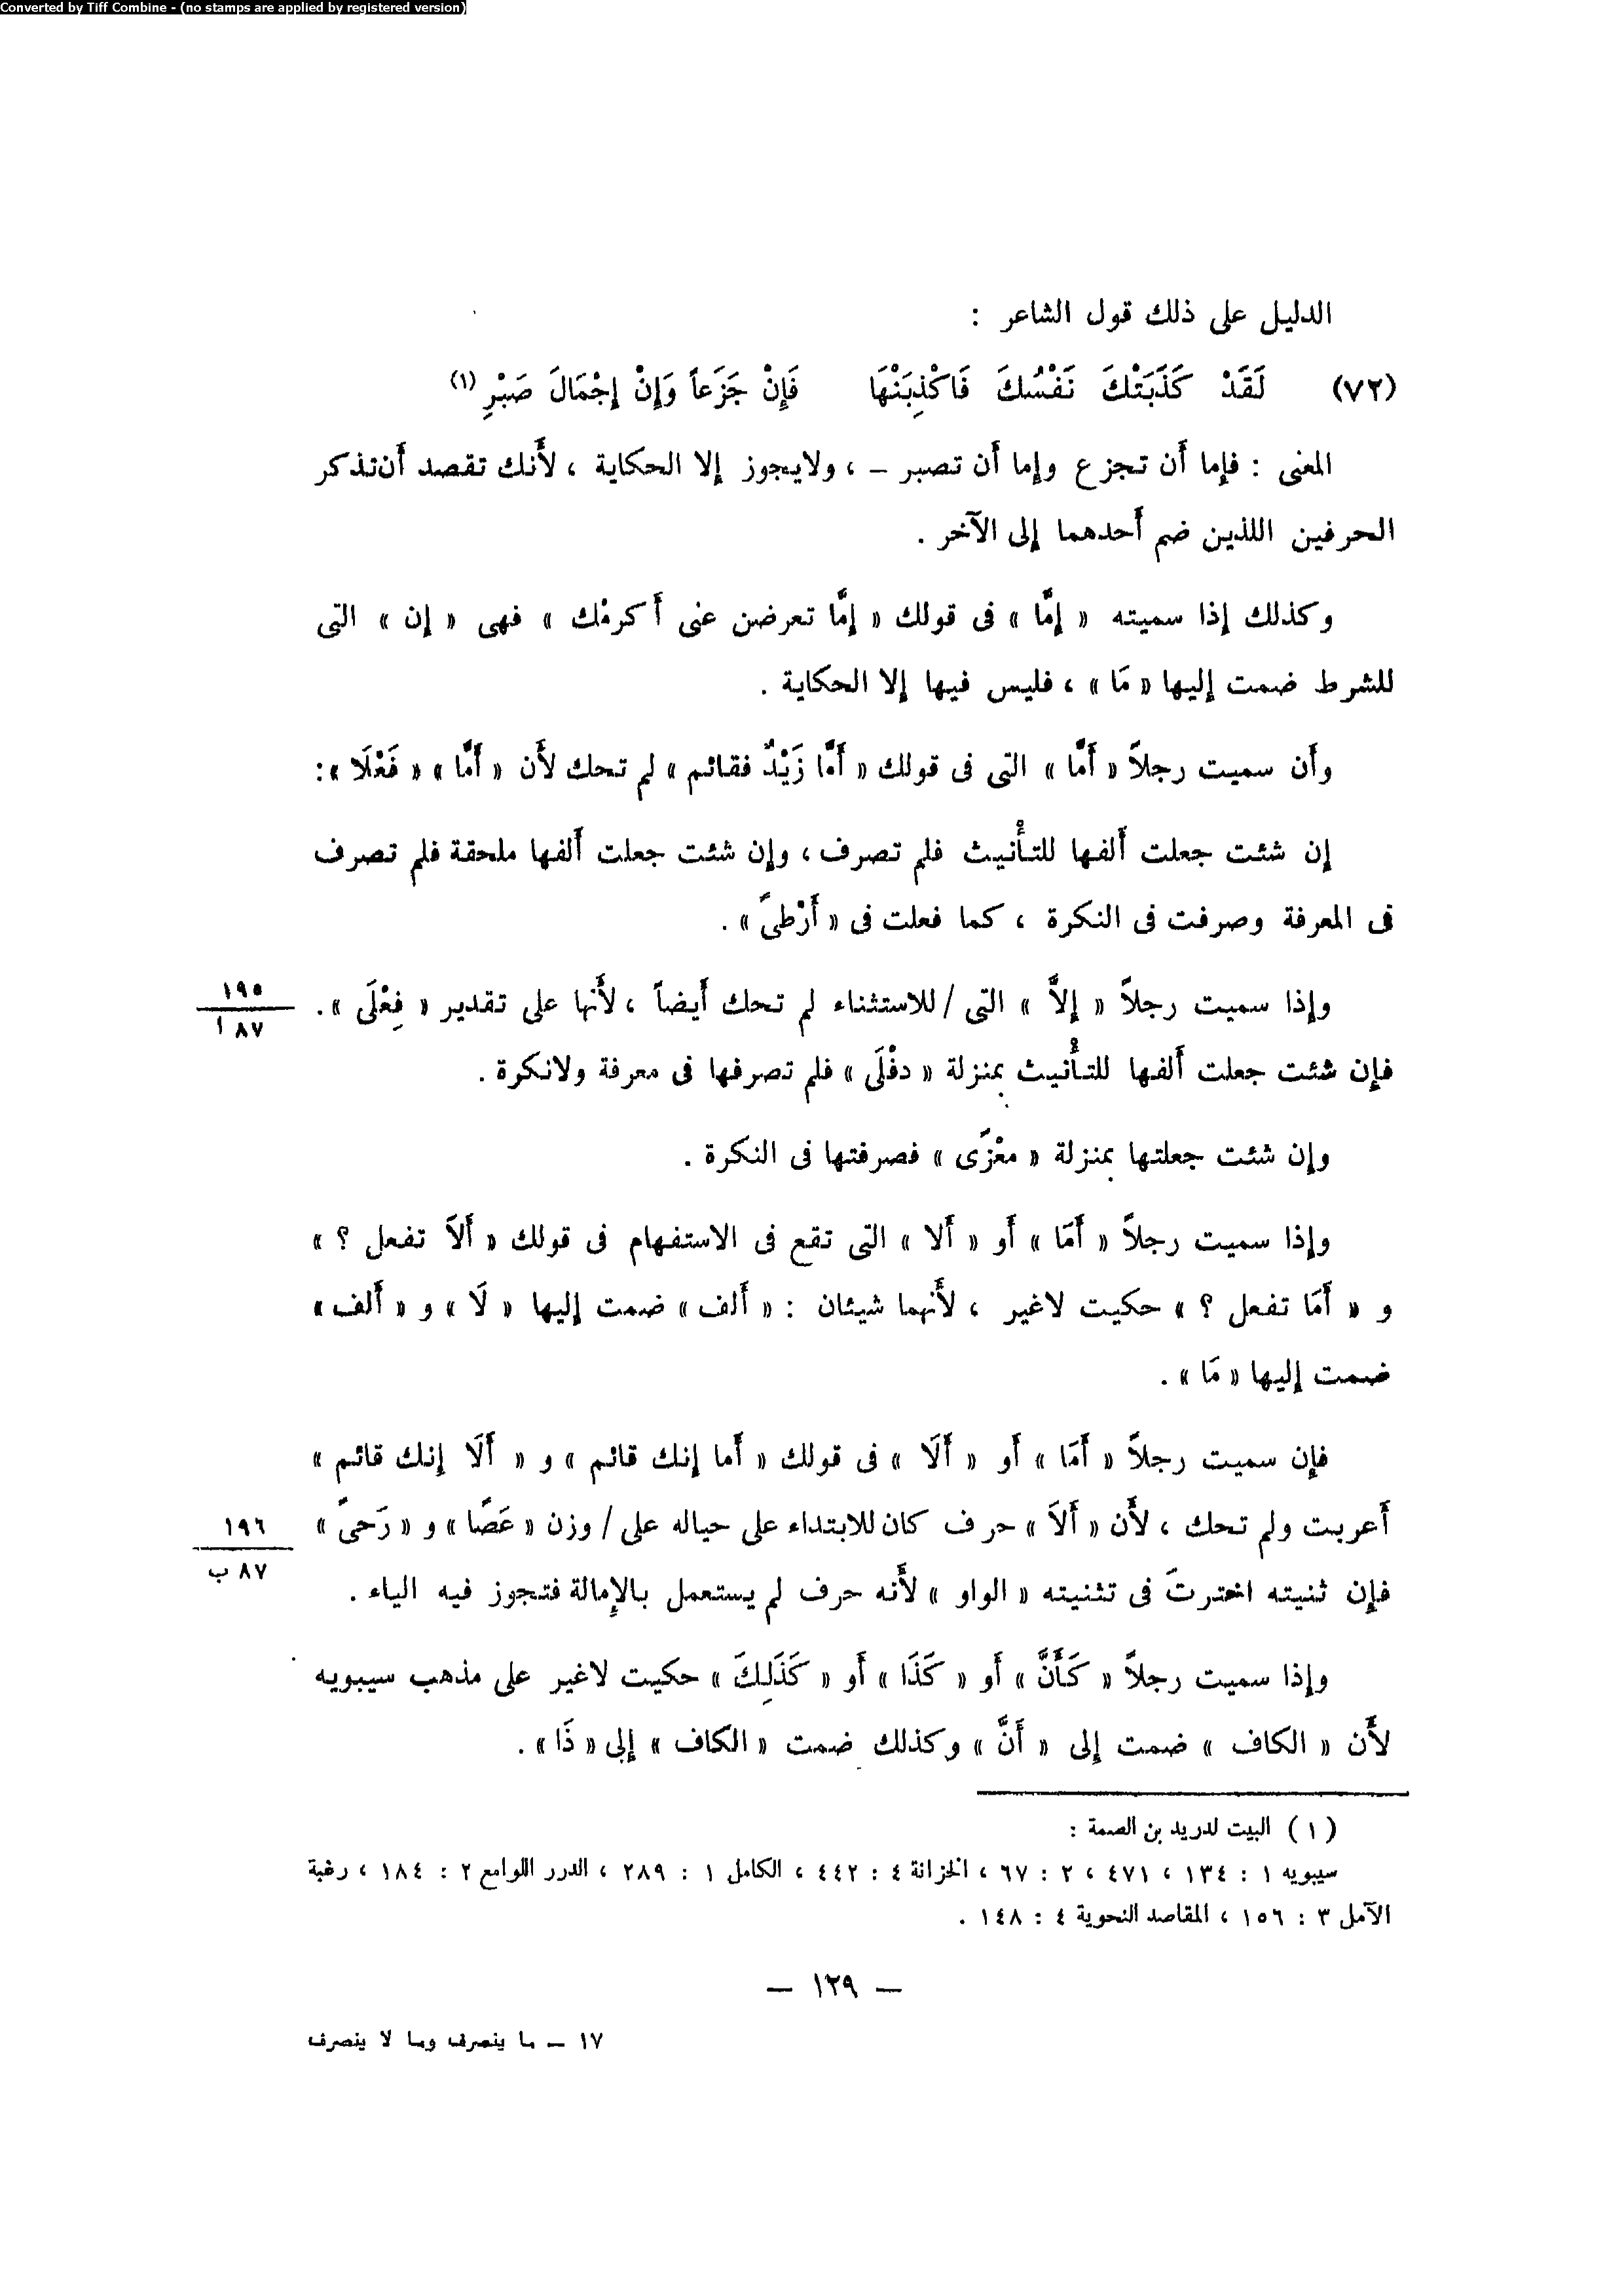 Converted by Tiff Combine - (no stamps are applied by registered version)
الدليل على ذلك قول الشاعر :
(٧٢) لَقَدْ كَذَبَتْكَ نَفْسُكَ فَاكْذِبَنْهَا فَإِنْ جَزَعاً وَإِنْ إِجْمَالَ صَبْرِ (١)
المعنى : فإما أن تجزع وإما أن تصبر – ، ولايجوز إلا الحكاية ، لأنك تقصد أن تذكر
الحرفين اللذين ضم أحدهما إلى الآخر .
وكذلك إذا سميته « إمَّا » فى قولك « إمَّا تعرضن عنى أكرمْك » فهى « إن » التى
للشرط ضمت إليها « مَا » ، فليس فيها إلا الحكاية .
وأن سميت رجلاً « أَمَّا » التى فى قولك « أَمَّا زَيْدٌ فقائم » لم تحك لأن « أَمَّا » « فَعْلَا » :
إن شئت جعلت ألفها للتأنيث فلم تصرف ، وإن شئت جعلت ألفها ملحقة فلم تصرف
فى المعرفة وصرفت فى النكرة ، كما فعلت فى « أَرْطىً » .
وإذا سميت رجلاً « إلاَّ » التى / للاستثناء لم تحك أيضاً ، لأنها على تقدير « فِعْلَى » .
١٩٥
٨٧ أ
فإن شئت جعلت ألفها للتأنيث بمنزلة « دفْلَى » فلم تصرفها فى معرفة ولانكرة .
وإن شئت جعلتها بمنزلة « معْزًى » فصرفتها فى النكرة .
وإذا سميت رجلاً « أَمَا » أو « ألا » التى تقع فى الاستفهام فى قولك « أَلاَ تفعل ؟ »
و « أَمَا تفعل ؟ » حكيت لاغير ، لأنهما شيئان : « ألف » ضمت إليها « لَا » و « ألف »
ضمت إليها « مَا » .
فإن سميت رجلاً « أَمَا » أو « أَلَا » فى قولك « أما إنك قائم » و « أَلَا إنك قائم »
أعربت ولم تحك ، لأن « أَلاَ » حرف كان للابتداء على حياله على / وزن « عَصًا » و « رَحىً »
١٩٦
٨٧ ب
فإن ثنيته اخترتَ فى تثنيته « الواو » لأنه حرف لم يستعمل بالإمالة فتجوز فيه الياء .
وإذا سميت رجلاً « كَأَنَّ » أو « كَذَا » أو « كَذَلِكَ » حكيت لاغير على مذهب سيبويه
لأن « الكاف » ضمت إلى « أَنَّ » وكذلك ضمت « الكاف » إلى « ذَا » .
(١) البيت لدريد بن الصمة :
سيبويه ١ : ١٣٤ ، ٤٧١ ، ٢ : ٦٧ ، الخزانة ٤ : ٤٤٢ ، الكامل ١ : ٢٨٩ ، الدرر اللوامع ٢ : ١٨٤ ، رغبة
الآمل ٣ : ١٥٦ ، المقاصد النحوية ٤ : ١٤٨ .
— ١٢٩ —
١٧ – ما ينصرف وما لا ينصرف